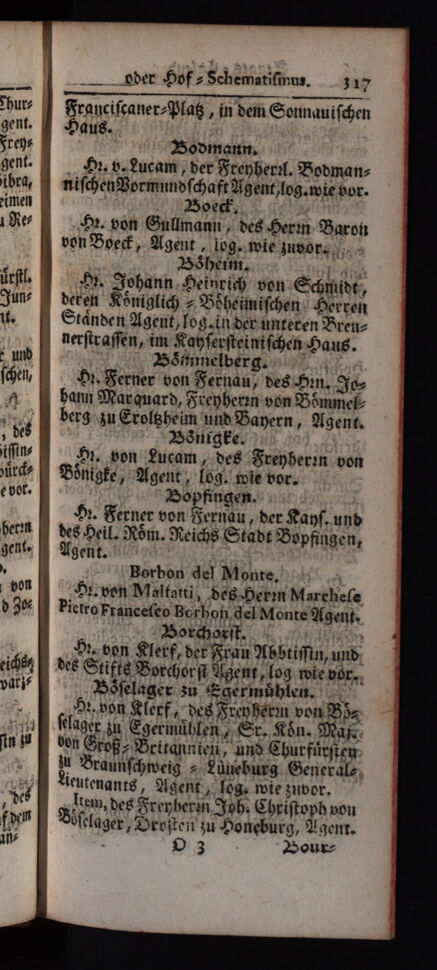 oder Hof-Schematismus. 317
Franciscaner-Platz, in dem Sonnauischen
Haus.
Bodmann.
Hr. v. Lucam, der Freyherrl. Bodman-
nischen Vormundschaft Agent, log. wie vor.
Boeck.
Hr. von Gullmann, des Herrn Baron
von Boeck, Agent, log. wie zuvor.
Böheim.
Hr. Johann Heinrich von Schmidt,
deren Königlich-Böheimischen Herren
Ständen Agent, log. in der unteren Breu-
nerstrassen, im Kaysersteinischen Haus.
Bömmelberg.
Hr. Ferner von Fernau, des Hrn. Jo-
hann Marquard, Freyherrn von Bömmel-
berg zu Eroltzheim und Bayern, Agent.
Bönigke.
Hr. von Lucam, des Freyherrn von
Bönigke, Agent, log. wie vor.
Bopfingen.
Hr. Ferner von Fernau, der Kays. und
des Heil. Röm. Reichs Stadt Bopfingen,
Agent.
Borbon del Monte.
Hr. von Maltatti, des Herrn Marchese
Pietro Francesco Borbon del Monte Agent.
Borchorst.
Hr. von Klerf, der Frau Abbtissin, und
des Stifts Borchorst Agent, log wie vor.
Böselager zu Egermühlen.
Hr. von Klerf, des Freyherrn von Bö-
selager zu Egermühlen, Sr. Kön. Maj.
von Groß-Britannien, und Churfürsten
zu Braunschweig-Lüneburg General-
Lieutenants, Agent, log. wie zuvor.
Item, des Freyherrn Joh. Christoph von
Böselager, Drosten zu Honeburg, Agent.
O 3 Bour-